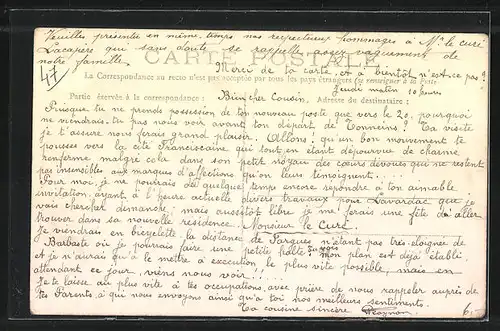 Veuillez présenter en même temps nos respectueux hommages à Mr le curé
Lacapère qui sans doute se rappelle assez vaguement de
notre famille.
CARTE POSTALE
47
Merci de la carte, et à bientôt n'est-ce pas?
La Correspondance au recto n'est pas acceptée par tous les pays étrangers (se renseigner à la Poste)
Jeudi matin 10 heures
Partie écrite à la correspondance: Bien cher Cousin, Adresse du destinataire:
Puisque tu ne prends possession de ton nouveau poste que vers le 20, pourquoi
ne viendrais-tu pas nous voir avant ton départ de Tonneins? Ta visite
je t'assure nous ferais grand plaisir. Allons! qu'un bon mouvement te
pousses vers la cité Franciscaine qui tout en étant dépourvue de charme
renferme malgré cela dans son petit noyau des cœurs dévoués qui ne restent
pas insensibles aux marques d'affections qu'on leurs témoignent....
Pour moi, je ne pourrais de quelque temps encore répondre à ton aimable
invitation, ayant à l'heure actuelle divers travaux pour Lavardac que je
vais chercher dimanche; mais aussitôt libre je me ferais une fête d'aller
trouver dans sa nouvelle résidence, Monsieur le Curé.
Je viendrais en bicyclette la distance de Fargues n'étant pas très éloignée de
Barbaste où je pourrais faire une petite halte; tu vois mon plan est déjà établi
et je n'aurais qu'à le mettre à exécution le plus vite possible, mais en
attendant ce jour, viens nous voir!!
Je te laisse au plus vite à tes occupations, avec prière de nous rappeler auprès de
tes Parents, à qui nous envoyons ainsi qu'à toi nos meilleurs sentiments.
Ta cousine sincère